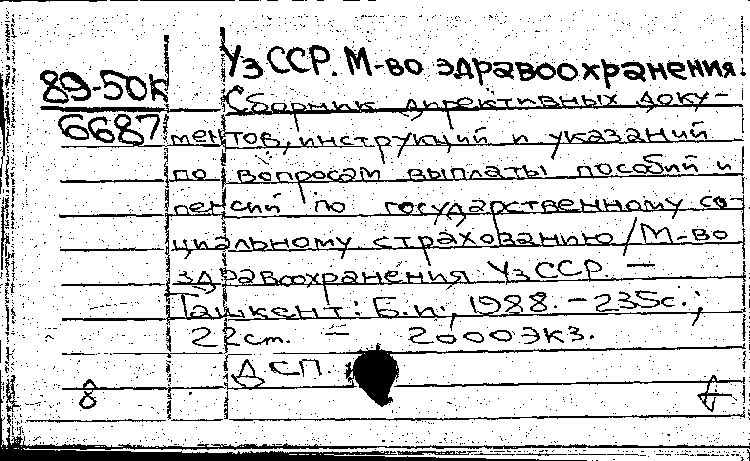 УзССР. М-во здравоохранения.
89-50к
6687
Сборник директивных доку-
ментов, инструкций и указаний
по вопросам выплаты пособий и
пенсий по государственному со-
циальному страхованию / М-во
здравоохранения УзССР. —
Ташкент: Б.и., 1988. - 235с.;
22 cm. — 2000экз.
ДСП.
8